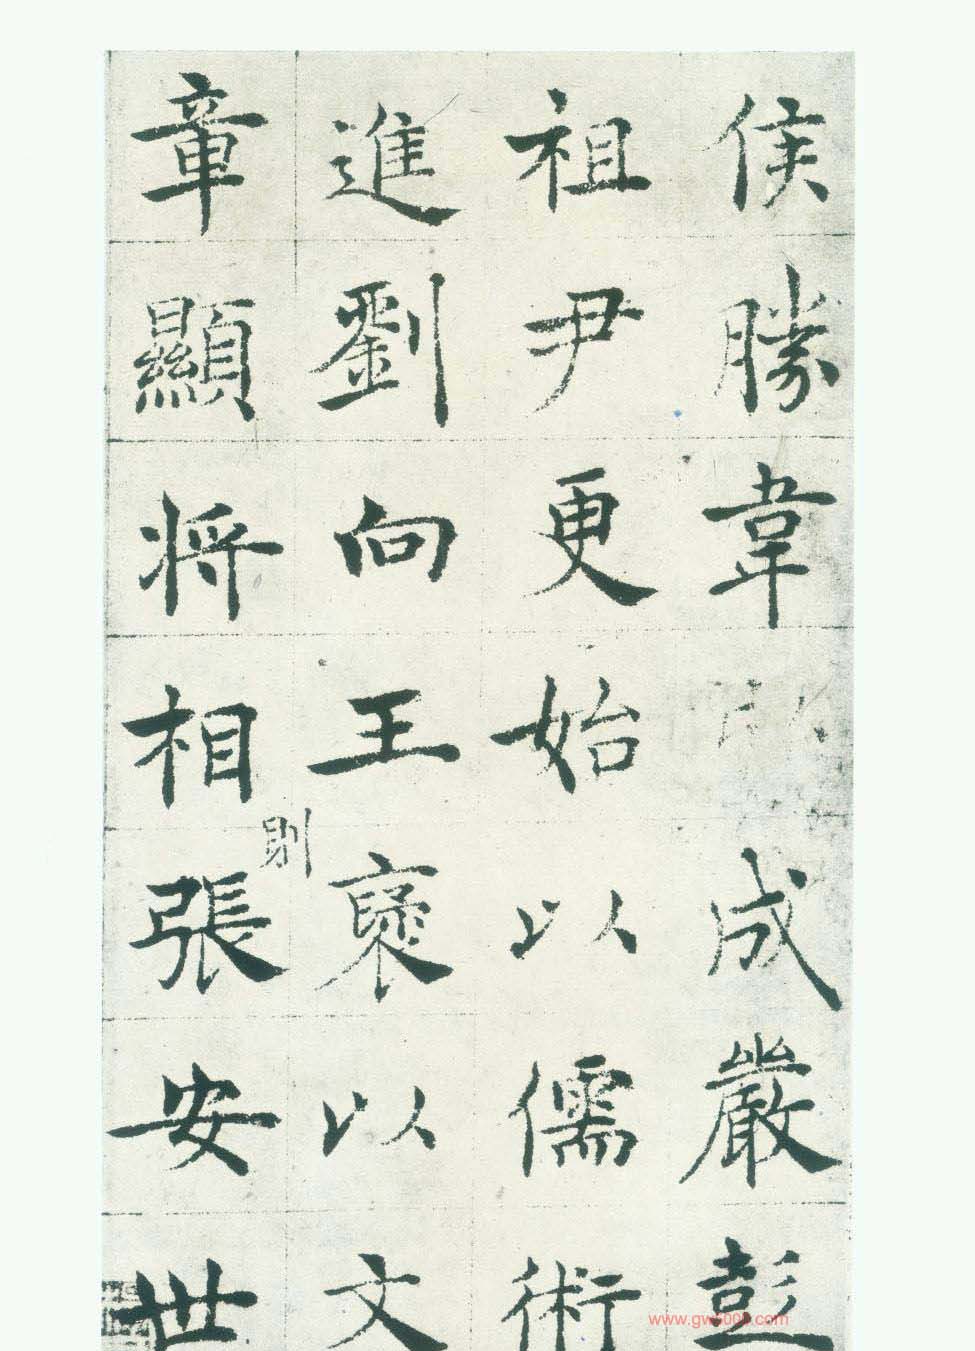 侯勝韋成嚴彭
祖尹更始以儒術
進劉向王褒以文
則
章顯將相張安世
www.gw5000.com